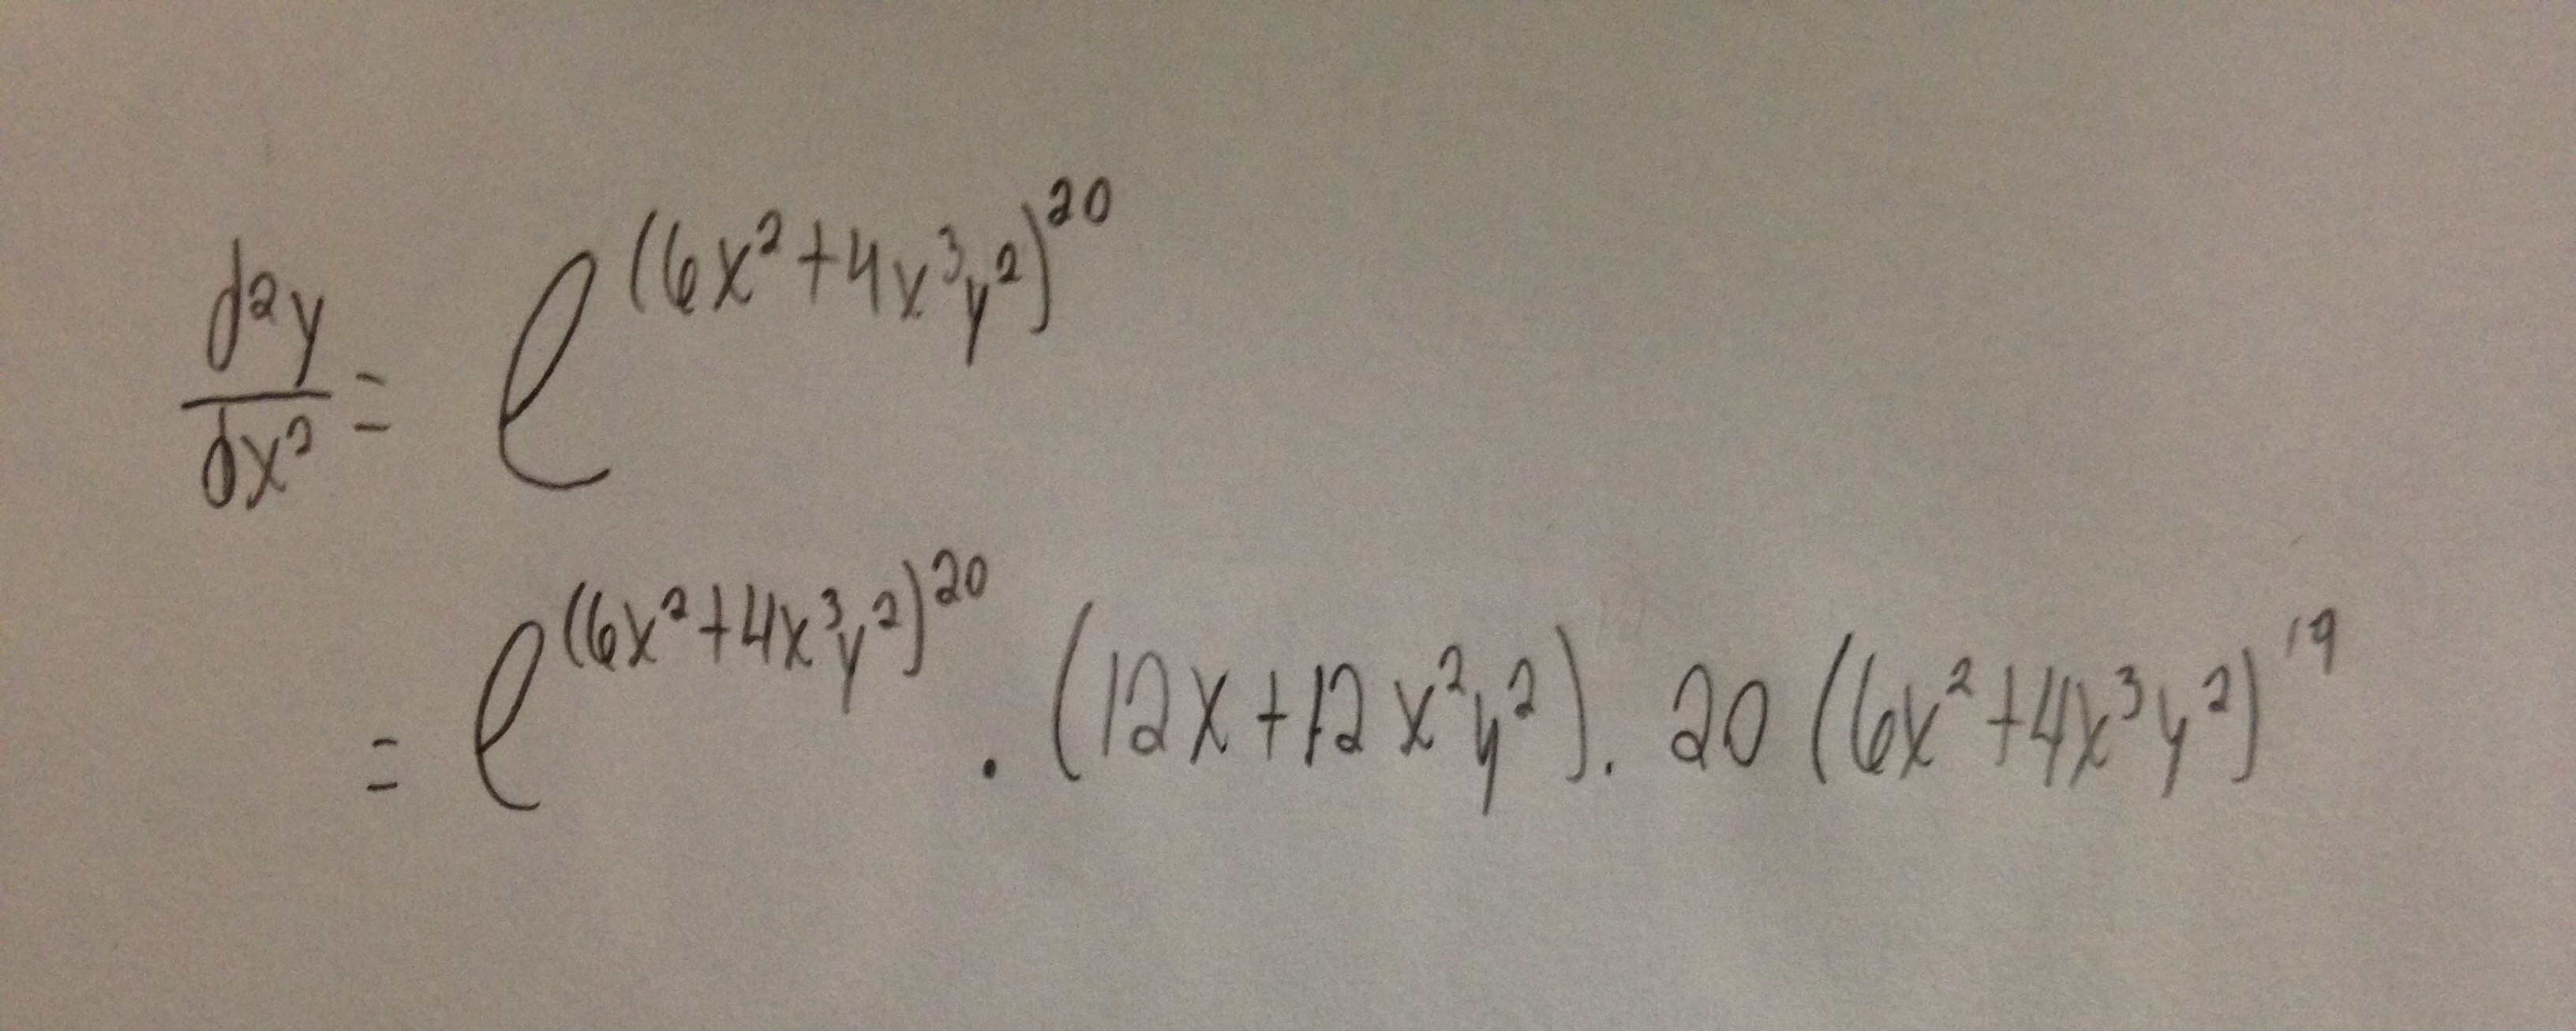 d²y/dx² = e^(6x²+4x³y²)^20
= e^(6x²+4x³y²)^20 . (12x+12x²y²). 20 (6x²+4x³y²)^19